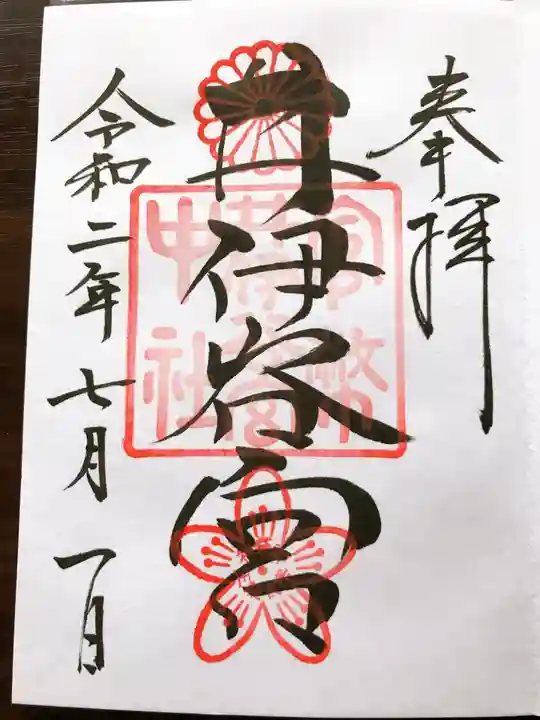 奉拝
井伊谷宮
官幣
中社
令和二年七月一日